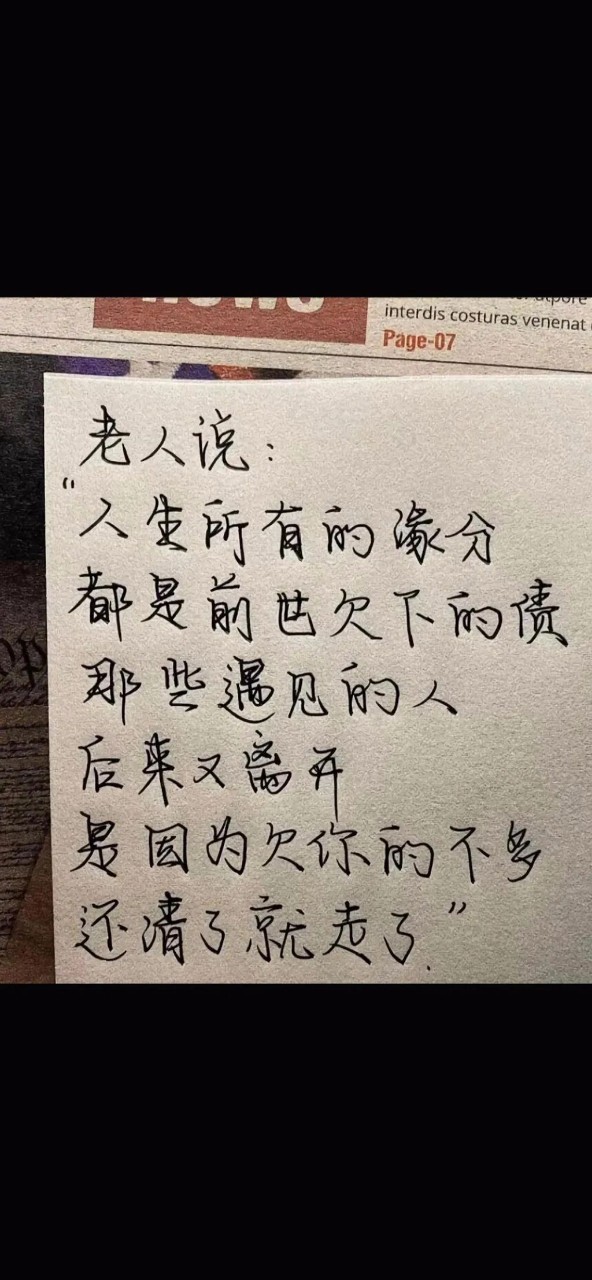 news
interdis costuras venenat
Page-07
老人说：
“人生所有的缘分
都是前世欠下的债
那些遇见的人
后来又离开
是因为欠你的不多
还清了就走了”